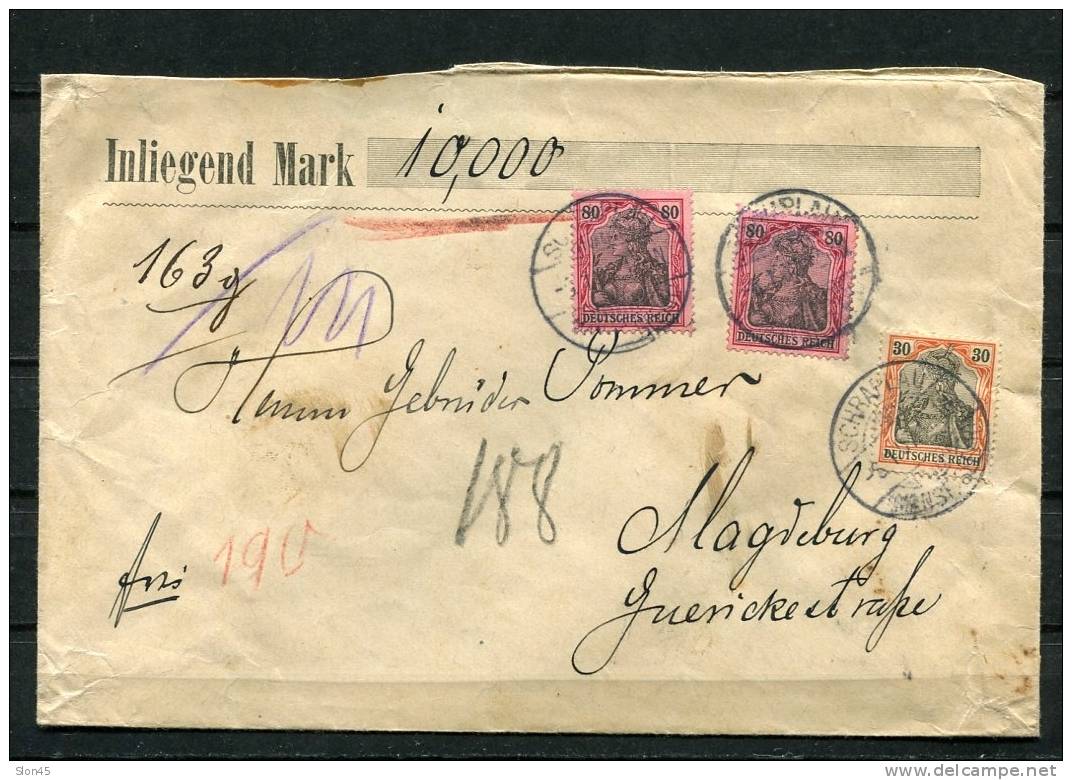 Inliegend Mark 10,000
80 80
DEUTSCHES REICH
80 80
DEUTSCHES REICH
163 g
30 30
DEUTSCHES REICH
SCHRAPLAU
Herren Gebrüder Pommer
188
Magdeburg
Guerickestraße
frei
190
Slon45
www.delcampe.net